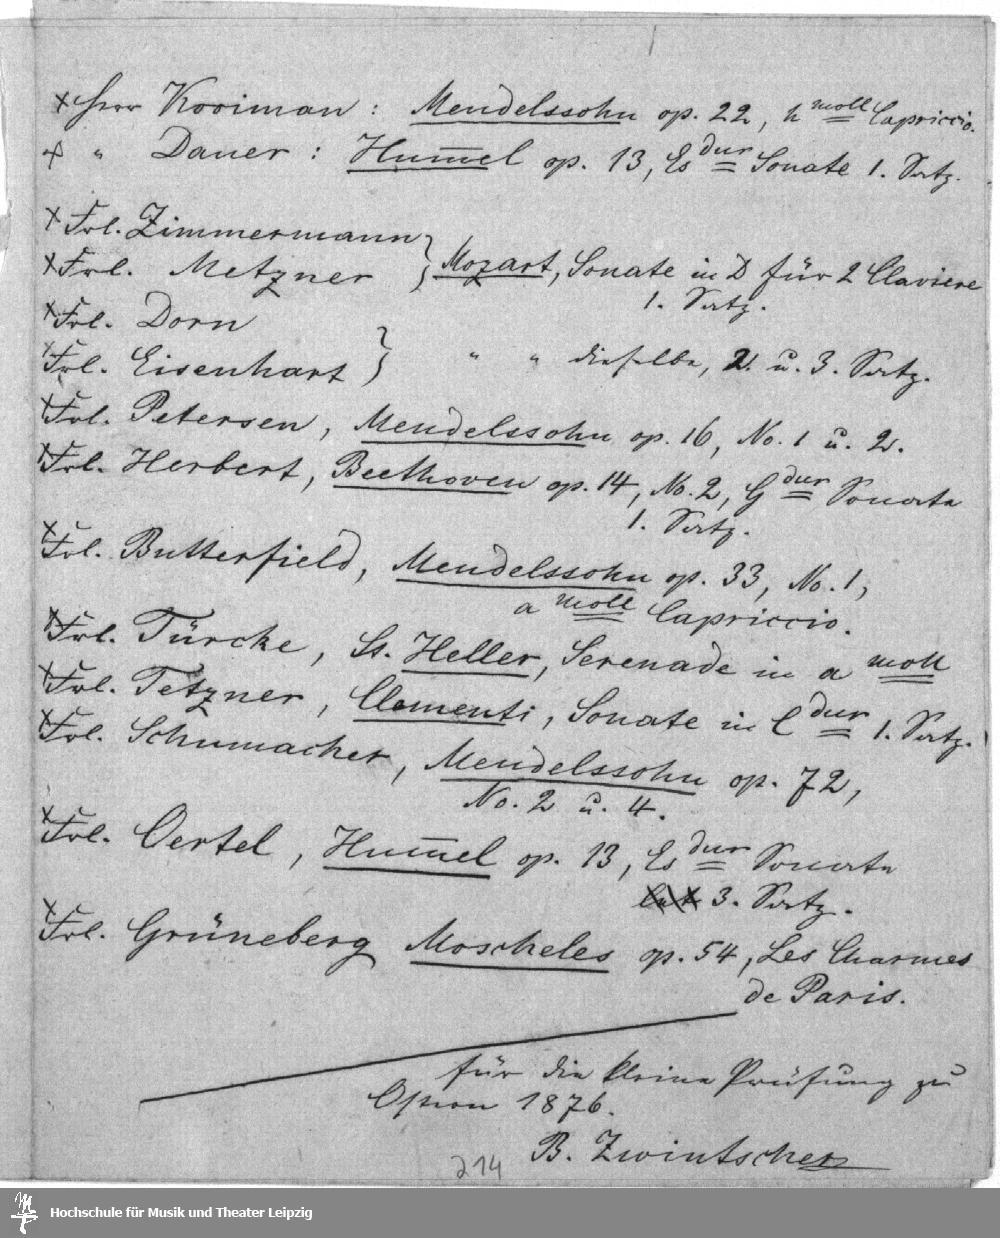 × Herr Kooiman : Mendelssohn op. 22, h moll Capriccio.
× " Dauer : Hummel op. 13, Es dur Sonate 1. Satz.
× Frl. Zimmermann
× Frl. Metzner } Mozart, Sonate in D für 2 Claviere
1. Satz.
× Frl. Dorn
× Frl. Eisenhart } " " dieselbe, 2. u. 3. Satz.
× Frl. Petersen, Mendelssohn op. 16, No. 1 u. 2.
× Frl. Herbert, Beethoven op. 14, No. 2, G dur Sonate
1. Satz.
× Frl. Butterfield, Mendelssohn op. 33, No. 1,
a moll Capriccio.
× Frl. Türcke, St. Heller, Serenade in a moll
× Frl. Tetzner, Clementi, Sonate in C dur 1. Satz.
× Frl. Schumacher, Mendelssohn op. 72,
No. 2 u. 4.
× Frl. Oertel, Hummel op. 13, Es dur Sonate
3. Satz.
× Frl. Grüneberg Moscheles op. 54, Les Charmes
de Paris.
für die kleine Prüfung zu
Ostern 1876.
B. Zwintscher
214
Hochschule für Musik und Theater Leipzig